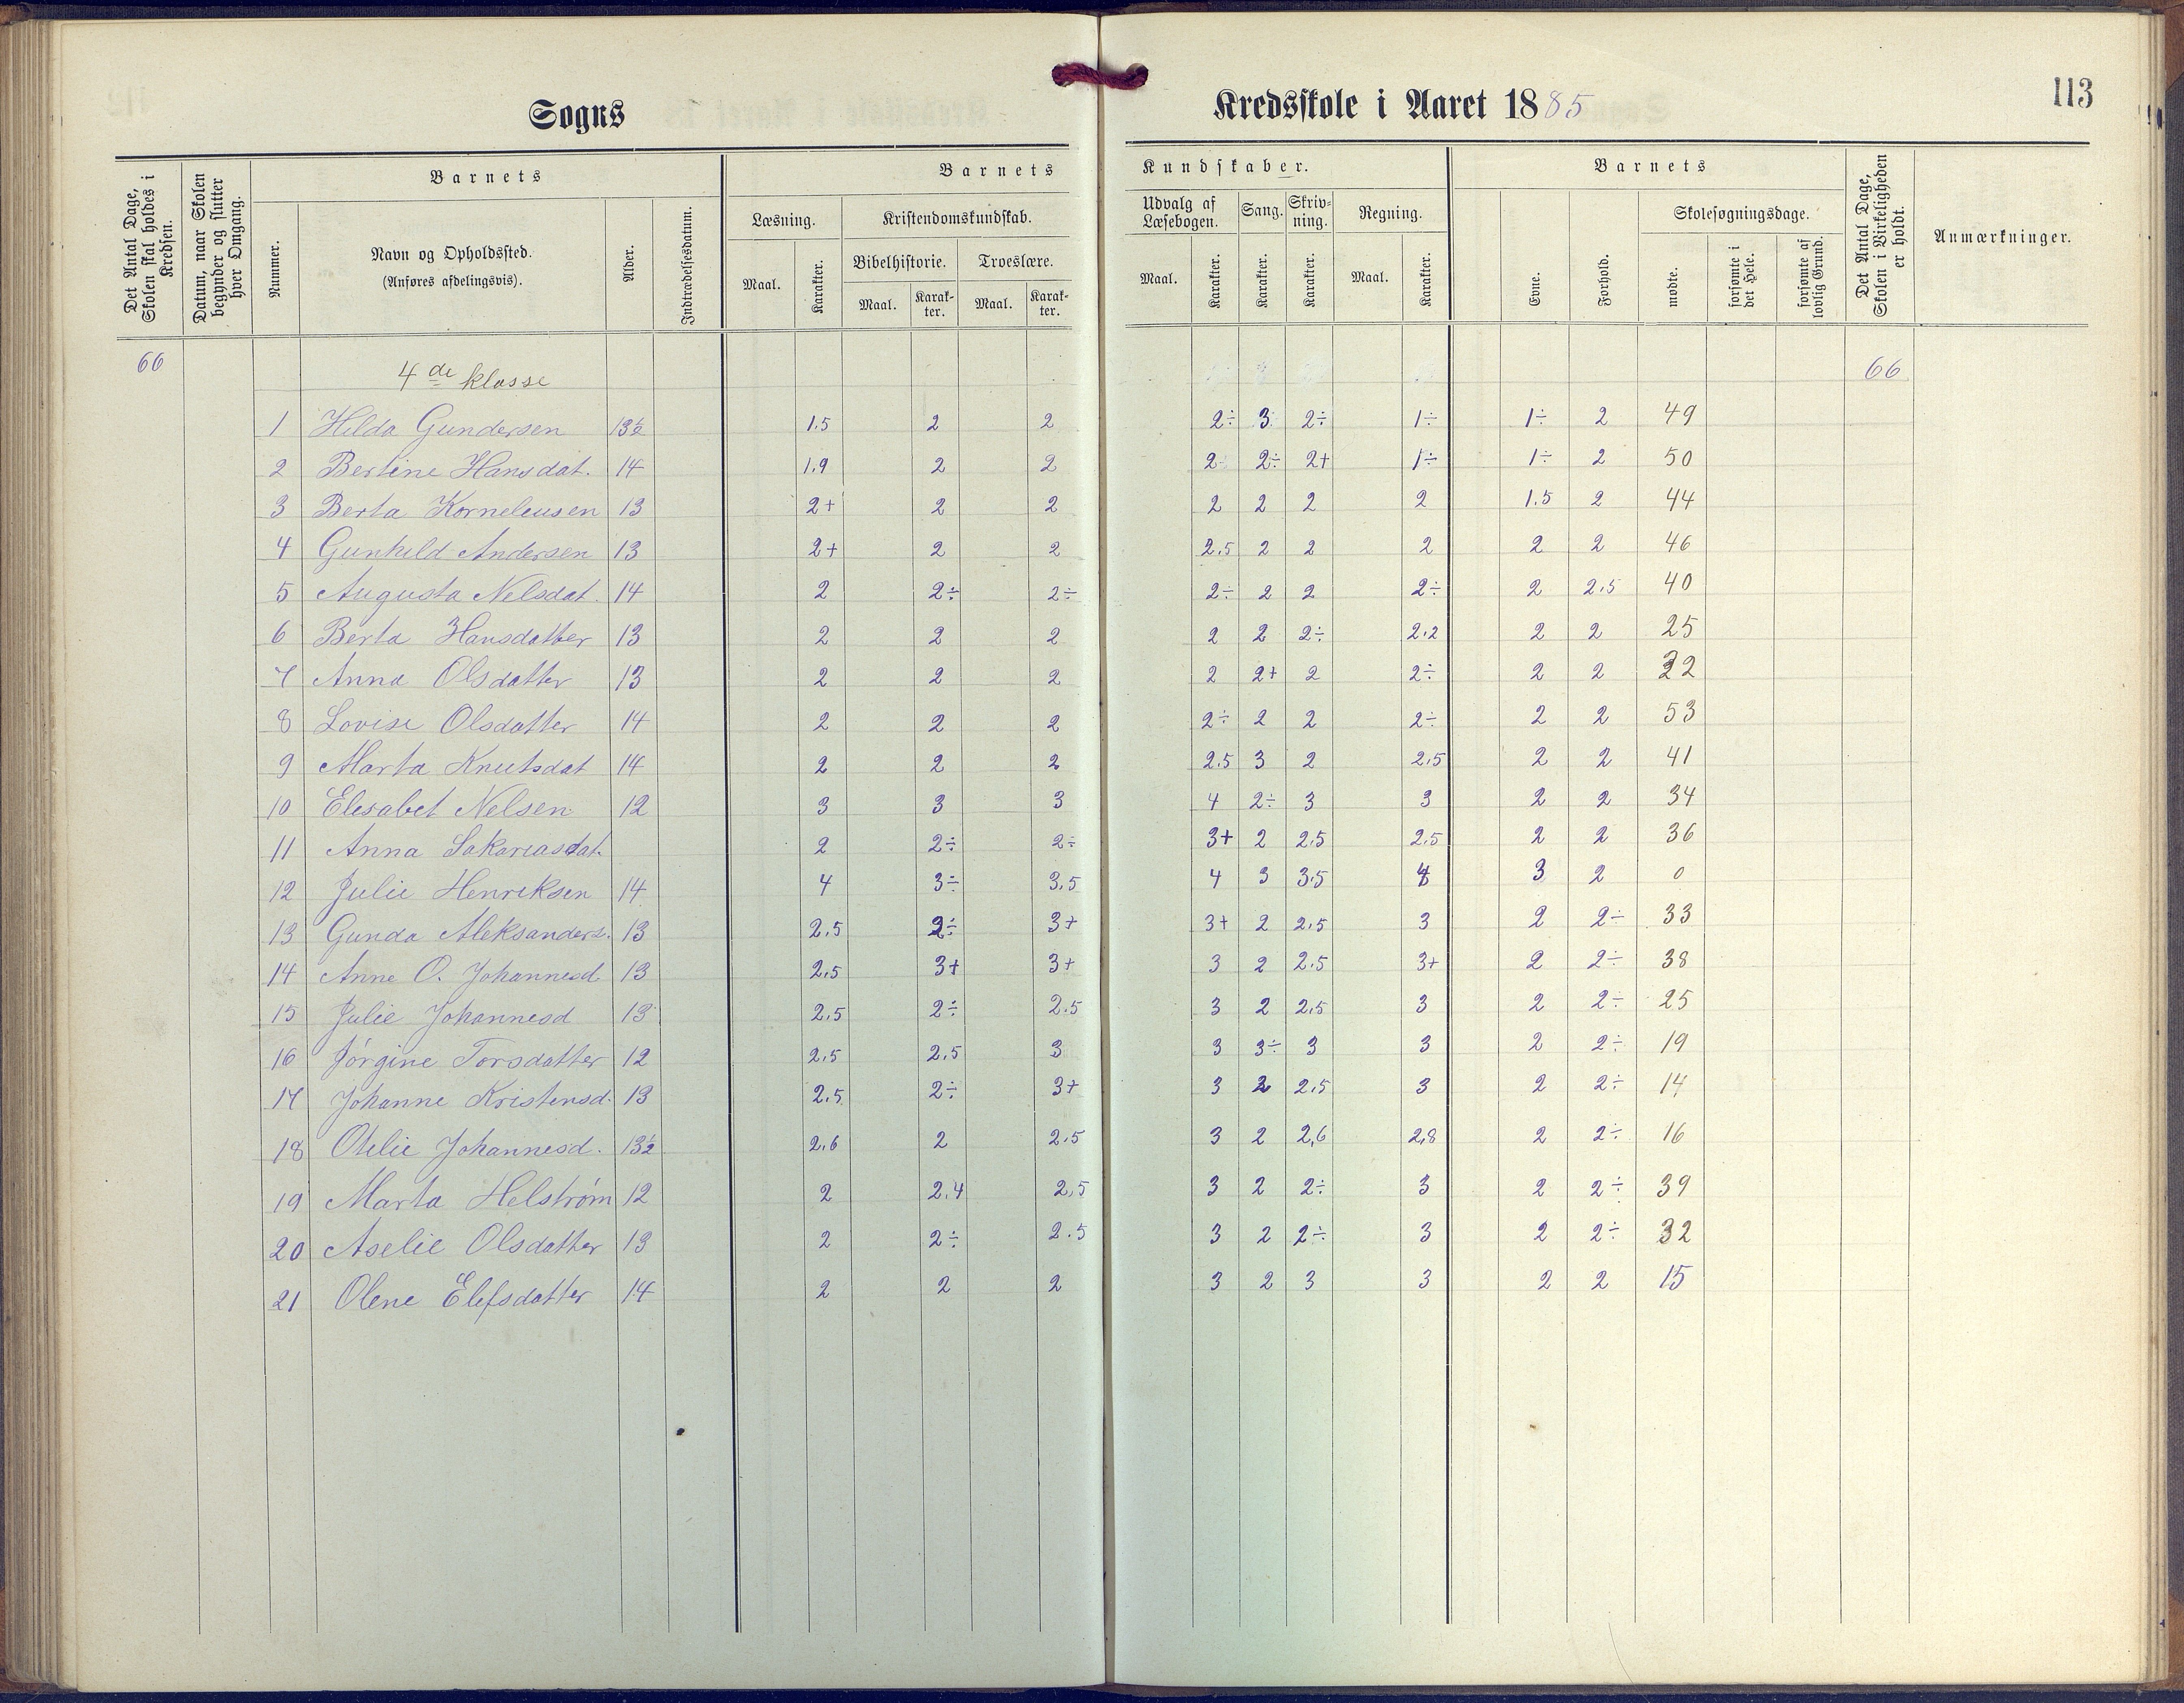 Sogns
Kredsskole i Aaret 1885
113
Det Antal Dage, Skolen skal holdes i Kredsen.
Datum, naar Skolen begynder og slutter hver Omgang.
Barnets
Nummer.
Navn og Opholdssted.
(Anføres afdelingsvis).
Alder.
Indtrædelsesdatum.
Barnets
Kundskaber.
Læsning.
Maal.
Karakter.
Kristendomskundskab.
Bibelhistorie.
Maal.
Karak-
ter.
Troeslære.
Maal.
Karak-
ter.
Udvalg af
Læsebogen.
Maal.
Karakter.
Sang.
Karakter.
Skriv-
ning.
Karakter.
Regning.
Maal.
Karakter.
Barnets
Evne.
Forhold.
Skolesøgningsdage.
mødte.
forsømte i det Hele.
forsømte af lovlig Grund.
Det Antal Dage, Skolen i Virkeligheden er holdt.
Anmærkninger.
66 4de klasse 66
1 Hilda Gundersen 13½ 1.5 2 2 2÷ 3 2÷ 1÷ 1÷ 2 49
2 Bertine Hansdat. 14 1.9 2 2 2÷ 2÷ 2+ 1÷ 1÷ 2 50
3 Berta Korneleusen 13 2+ 2 2 2 2 2 2 1.5 2 44
4 Gunhild Andersen 13 2+ 2 2 2.5 2 2 2 2 2 46
5 Augusta Nelsdat. 14 2 2÷ 2÷ 2÷ 2 2 2÷ 2 2.5 40
6 Berta Hansdatter 13 2 2 2 2 2 2÷ 2.2 2 2 25
7 Anna Olsdatter 13 2 2 2 2 2+ 2 2÷ 2 2 32
8 Lovise Olsdatter 14 2 2 2 2÷ 2 2 2÷ 2 2 53
9 Marta Knutsdat 14 2 2 2 2.5 3 2 2.5 2 2 41
10 Elesabet Nelsen 12 3 3 3 4 2÷ 3 3 2 2 34
11 Anna Sakariasdat. 2 2÷ 2÷ 3+ 2 2.5 2.5 2 2 36
12 Julie Henriksen 14 4 3÷ 3.5 4 3 3.5 4 3 2 0
13 Gunda Aleksanders. 13 2.5 2÷ 3+ 3+ 2 2.5 3 2 2÷ 33
14 Anne O. Johannesd 13 2.5 3+ 3+ 3 2 2.5 3+ 2 2÷ 38
15 Julie Johannesd 13 2.5 2÷ 2.5 3 2 2.5 3 2 2÷ 25
16 Jørgine Torsdatter 12 2.5 2.5 3 3 3÷ 3 3 2 2÷ 19
17 Johanne Kristensd. 13 2.5 2÷ 3+ 3 2 2.5 3 2 2÷ 14
18 Otilie Johannesd. 13½ 2.6 2 2.5 3 2 2,6 2,8 2 2÷ 16
19 Marta Helstrøm 12 2 2.4 2,5 3 2 2÷ 3 2 2÷ 39
20 Aselie Olsdatter 13 2 2÷ 2.5 3 2 2÷ 3 2 2÷ 32
21 Olene Elefsdatter 14 2 2 2 3 2 3 3 2 2 15